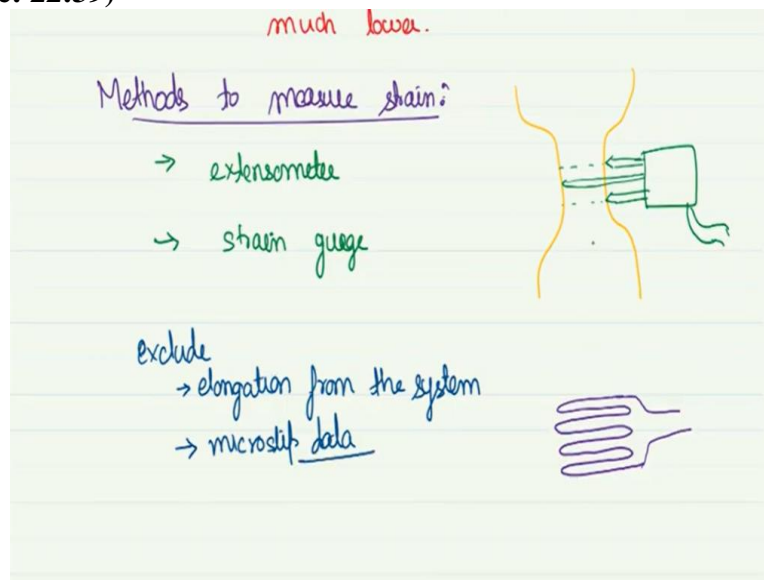 c. 22:39)
much lower.
Methods to measure strain:
→ extensometer
→ strain guage
exclude
→ elongation from the system
→ microslip data